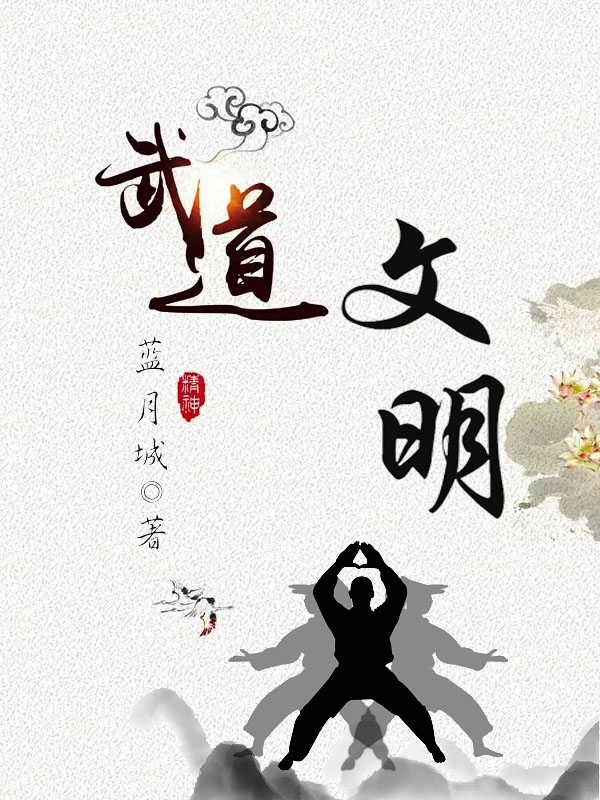 武道
文明
蓝月城◎著
精神